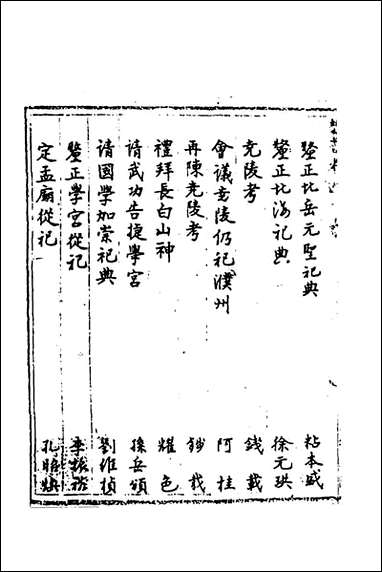 釐正北岳元聖祀典 粘本盛
釐正北海祀典 徐元珙
堯陵考 錢載
會議堯陵仍祀濮州 阿桂
再陳堯陵考 錢載
禮拜長白山神 耀色
請武功告捷學宮 孫岳頒
請國學加崇祀典 劉維禎
釐正學宮從祀 李振裕
定孟廟從祀